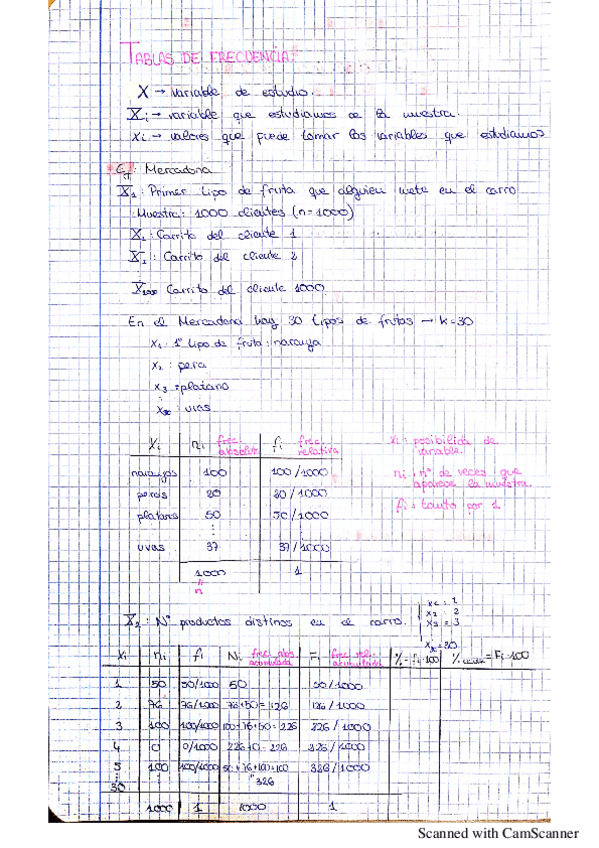 TABLAS DE FRECUENCIA:
X → variable de estudio.
Xi → variable que estudiamos de la muestra.
xi → valores que puede tomar las variables que estudiamos
Ej: Mercadona
X1: Primer tipo de fruta que alguien mete en el carro
Muestra: 1000 clientes (n=1000)
X1: Carrito del cliente 1
X1: Carrito del cliente 2
X1000 Carrito del cliente 1000
En el Mercadona hay 30 tipos de frutas → k=30
x1: 1º tipo de fruta: naranja
x2: pera
x3 = platano
⋮
x30: uvas
xi | ni frec. absoluta | fi frec. relativa
naranjas | 100 | 100/1000
peras | 20 | 20/1000
platanos | 50 | 50/1000
⋮ ⋮
uvas | 37 | 37/1000
1000 | 1
n
xi = posibilida de
variable.
ni = nº de veces que
aparece la muestra.
fi = tanto por 1
X2: Nº productos distinos en el carro.
x1 = 1
x2 = 2
x3 = 3
x30 = 30
xi | ni | fi | Ni frec. abs. acumulada | Fi frec. rela. acumulada | % = fi·100 | % = Fi·100
1 | 50 | 50/1000 | 50 | 50/1000
2 | 76 | 76/1000 | 76+50 = 126 | 126/1000
3 | 100 | 100/1000 | 100+76+50 = 226 | 226/1000
4 | 0 | 0/1000 | 226+0 = 226 | 226/1000
5 | 100 | 100/1000 | 50+76+100+100 | 326/1000
⋮ ⋮ " 326
30
1000 | 1 | 1000 | 1
Scanned with CamScanner